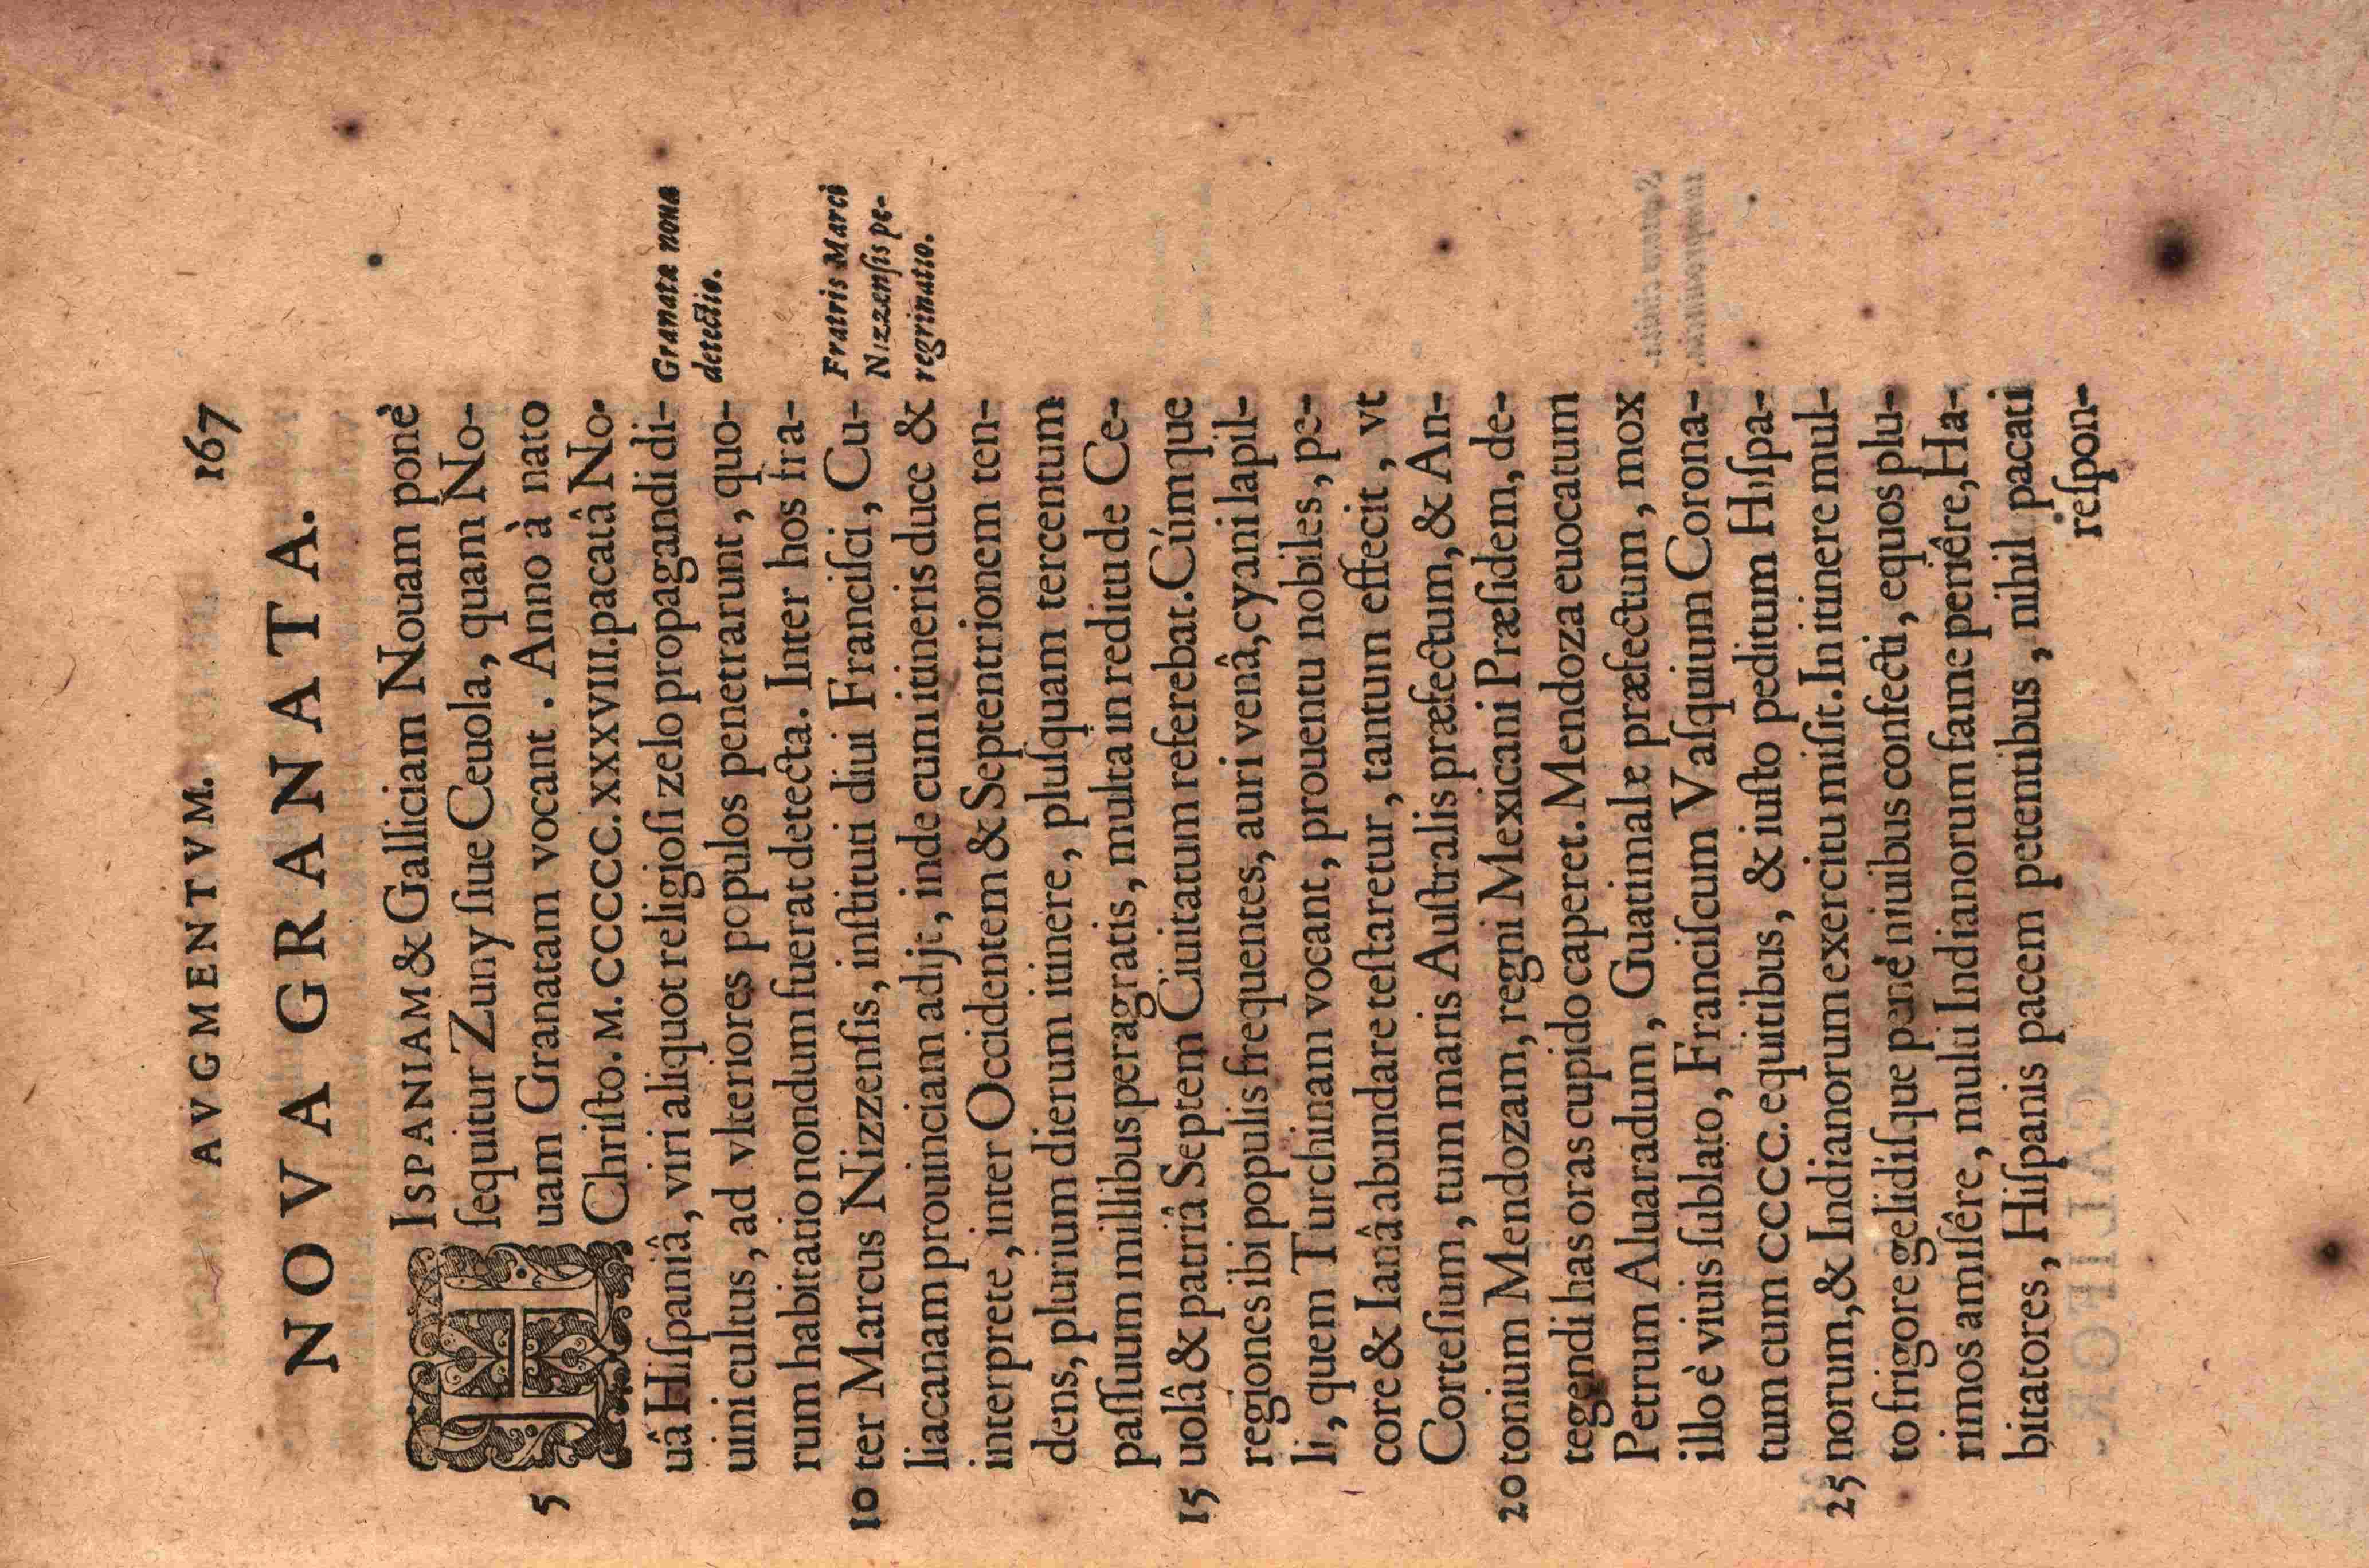 AVGMENTVM. 167
NOVA GRANATA.
HISPANIAM & Galliciam Nouam ponè
ſequitur Zuny ſiue Ceuola, quam No-
5 uam Granatam vocant. Anno à nato
Chriſto. M. CCCCC. XXXVIII. pacatâ No-
uâ Hiſpaniâ, viri aliquot religioſi zelo propagandi di-
Granatæ nouæ
detectio.
uini cultus, ad vlteriores populos penetrarunt, quo-
rum habitatio nondum fuerat detecta. Inter hos fra-
10 ter Marcus Nizzenſis, inſtituti diui Franciſci, Cu-
Fratris Marci
Nizzenſis pe-
regrinatio.
liacanam prouinciam adijt, inde cum itineris duce &
interprete, inter Occidentem & Septentrionem ten-
dens, plurium dierum itinere, pluſquam tercentum
paſſuum millibus peragratis, multa in reditu de Ce-
15 uolâ & patriâ Septem Ciuitatum referebat. Cúmque
regiones ibi populis frequentes, auri venâ, cyani lapil-
li, quem Turchinam vocant, prouentu nobiles, pe-
core & lanâ abundare teſtaretur, tantum effecit, vt
Corteſium, tum maris Auſtralis præfectum, & An-
20 tonium Mendozam, regni Mexicani Præſidem, de-
tegendi has oras cupido caperet. Mendoza euocatum
Petrum Aluaradum, Guatimalæ præfectum, mox
illo è viuis ſublato, Franciſcum Vaſquium Corona-
tum cum CCCC. equitibus, & iuſto peditum Hiſpa-
25 norum, & Indianorum exercitu miſit. In itinere mul-
to frigore gelidiſque penè niuibus confecti, equos plu-
rimos amiſêre, multi Indianorum fame periêre, Ha-
bitatores, Hiſpanis pacem petentibus, nihil pacati
reſpon-